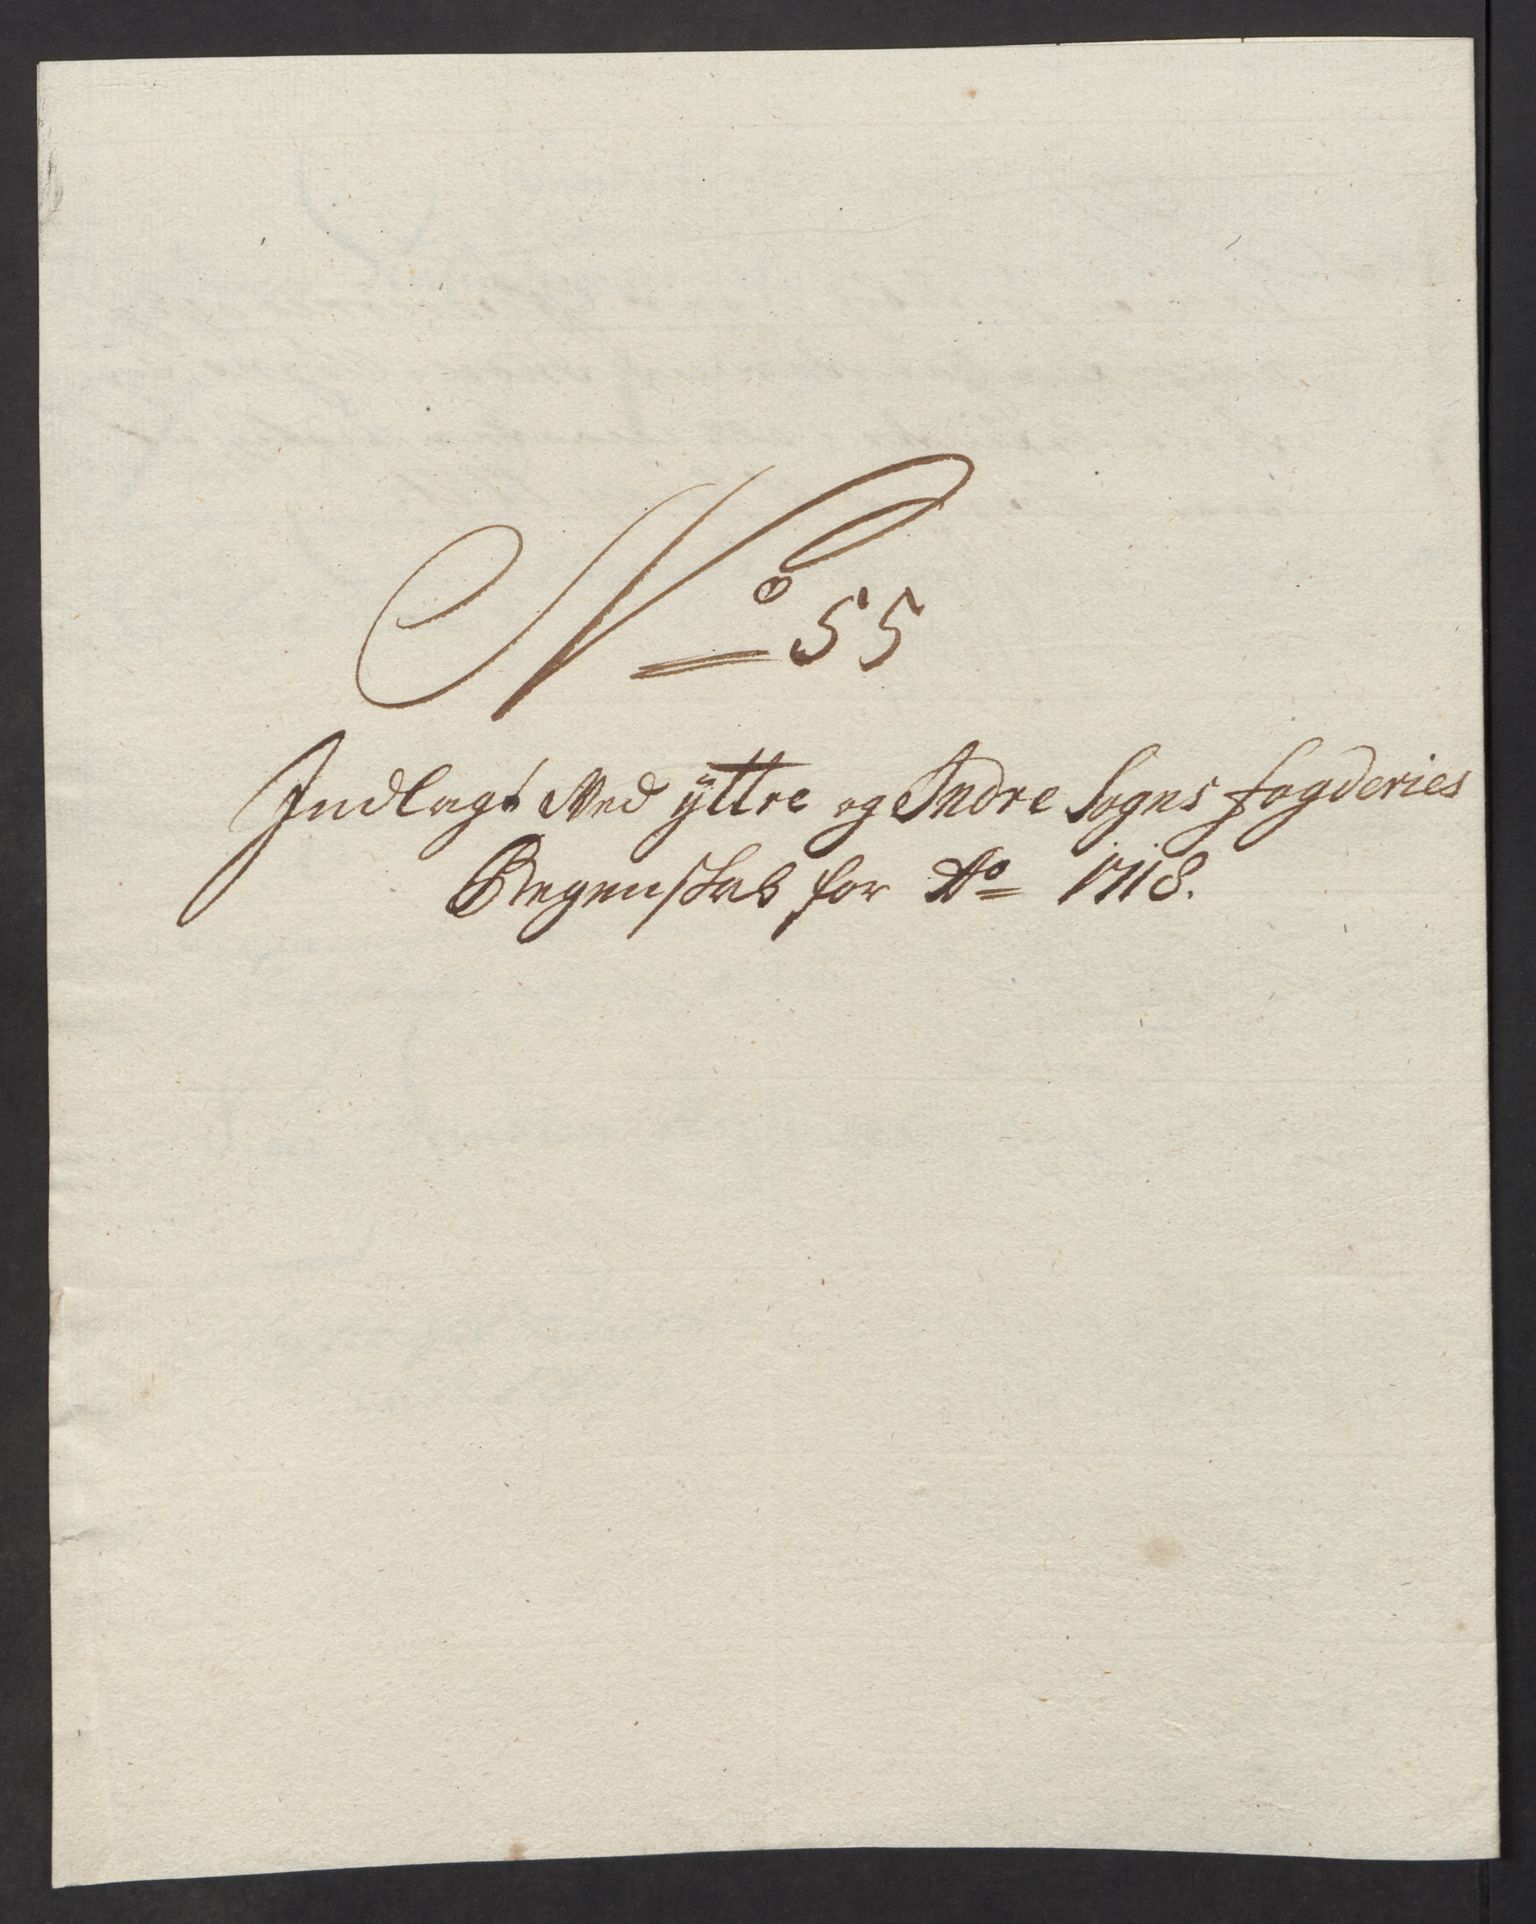 No 55
Indlagt Med ÿttre og Indre Sogns fogderies
Regenskab for Ao 1718.